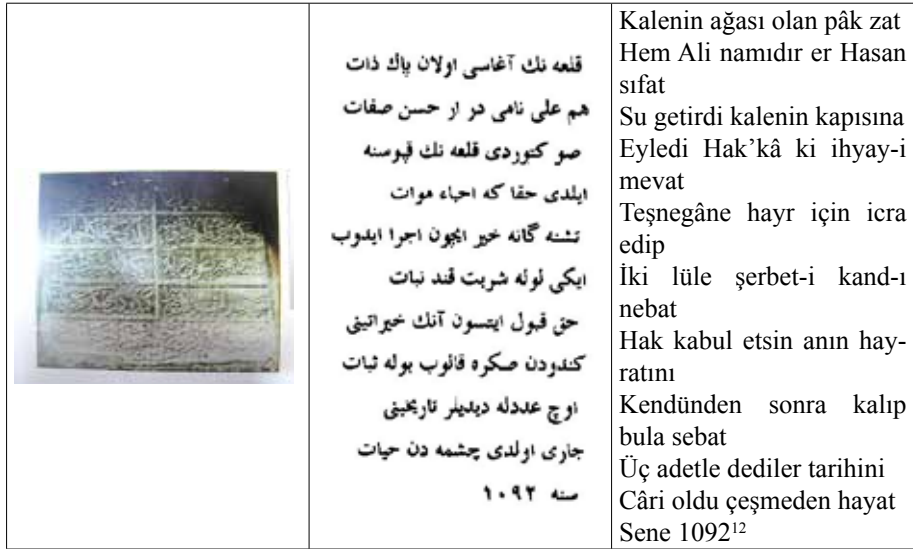 قلعه نك آغاسی اولان پاك ذات
هم علی نامی در ار حسن صفات
صو کتوردی قلعه نك قپوسنه
ایلدی حقا که احیاء موات
تشنه گانه خیر ایچون اجرا ایدوب
ایکی لوله شربت قند نبات
حق قبول ایتسون آنك خیراتینی
کندودن صکره قالوب بوله ثبات
اوچ عددله دیدیلر تاریخینی
جاری اولدی چشمه دن حیات
سنه ۱۰۹۲
Kalenin ağası olan pâk zat
Hem Ali namıdır er Hasan
sıfat
Su getirdi kalenin kapısına
Eyledi Hak’kâ ki ihyay-i
mevat
Teşnegâne hayr için icra
edip
İki lüle şerbet-i kand-ı
nebat
Hak kabul etsin anın hay-
ratını
Kendünden sonra kalıp
bula sebat
Üç adetle dediler tarihini
Câri oldu çeşmeden hayat
Sene 1092¹²